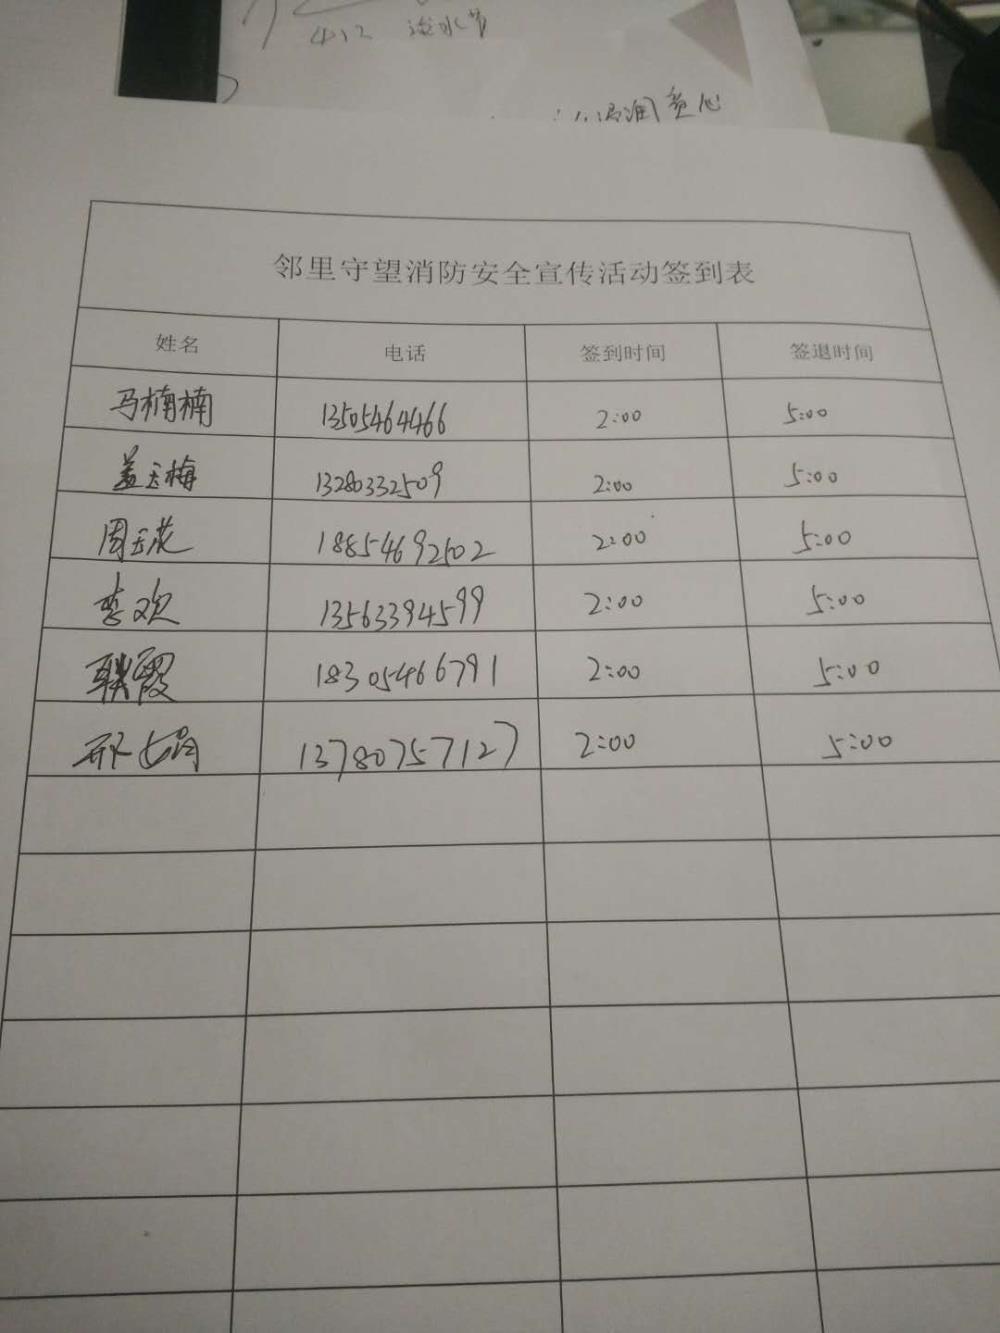 412
邻里守望消防安全宣传活动签到表
姓名 电话 签到时间 签退时间
马楠楠 13505464466 2:00 5:00
盖玉梅 13280332509 2:00 5:00
周玉花 18854692502 2:00 5:00
李欢 13563394599 2:00 5:00
霞 18305466791 2:00 5:00
13780757127 2:00 5:00